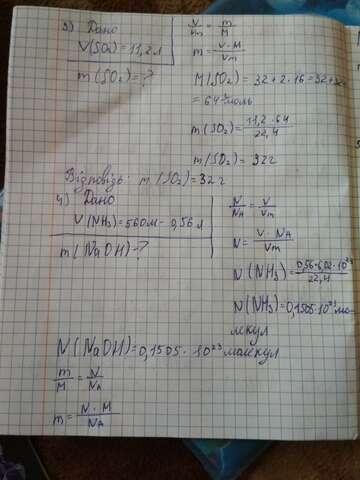 3) Дано
V(SO₂) = 11,2 л
m(SO₂) = ?
V/Vm = m/M
m = V · M / Vm
M(SO₂) = 32 + 2 · 16 = 32 + 32
= 64 г/моль
m(SO₂) = 11,2 · 64 / 22,4
m(SO₂) = 32 г
Відповідь: m(SO₂) = 32 г
4) Дано
V(NH₃) = 560 мл - 0,56 л
m(NaOH) - ?
N/NA = V/Vm
N = V · NA / Vm
N(NH₃) = 0,56 · 6,02 · 10²³ / 22,4
N(NH₃) = 0,1505 · 10²³ мо-
лекул
N(NaOH) = 0,1505 · 10²³ молекул
m/M = N/NA
m = N · M / NA